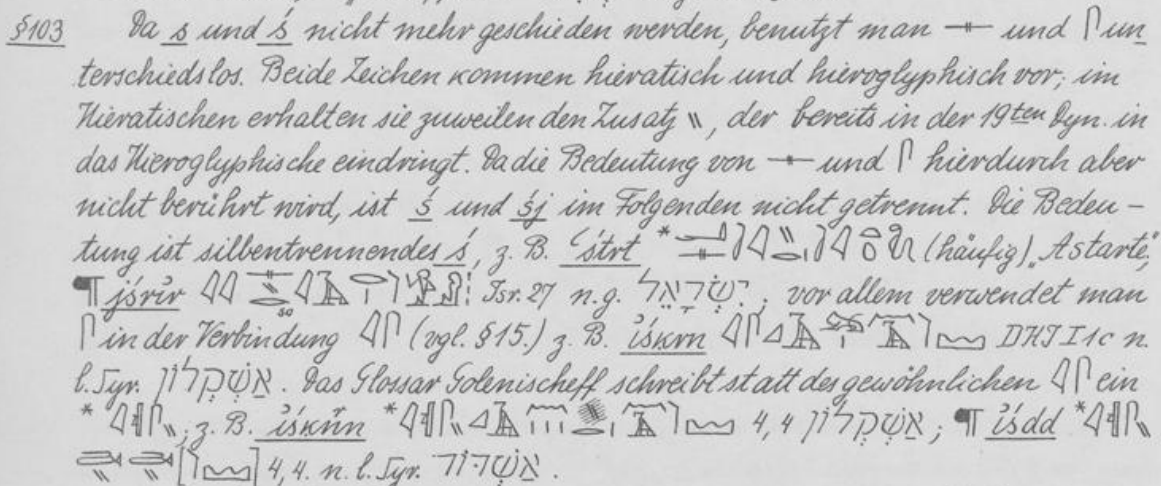 §103 Da s und ś nicht mehr geschieden werden, benutzt man 𓊃 und 𓋴 un
terschiedslos. Beide Zeichen kommen hieratisch und hieroglyphisch vor; im
Hieratischen erhalten sie zuweilen den Zusatz 𓏭, der bereits in der 19ten Dyn. in
das Hieroglyphische eindringt. Da die Bedeutung von 𓊃 und 𓋴 hierdurch aber
nicht berührt wird, ist ś und śj im Folgenden nicht getrennt. Die Bedeu-
tung ist silbentrennendes ś, z. B. ʿśtrt * (häufig) „Astarte",
¶ jśrỉr so Isr. 27 n.g. יִשְׂרָאֵל; vor allem verwendet man
𓋴 in der Verbindung 𓇋𓋴 (vgl. §15.) z. B. ỉśḳrn DHI I 1c n.
l. Syr. אַשְׁקְלוֹן. Das Glossar Golenischeff schreibt statt des gewöhnlichen 𓇋𓋴 ein
* ; z. B. * 4,4 אַשְׁקְלוֹן; ¶ ỉśdd *
[ ] 4,4. n. l. Syr. אַשְׁדּוֹד.